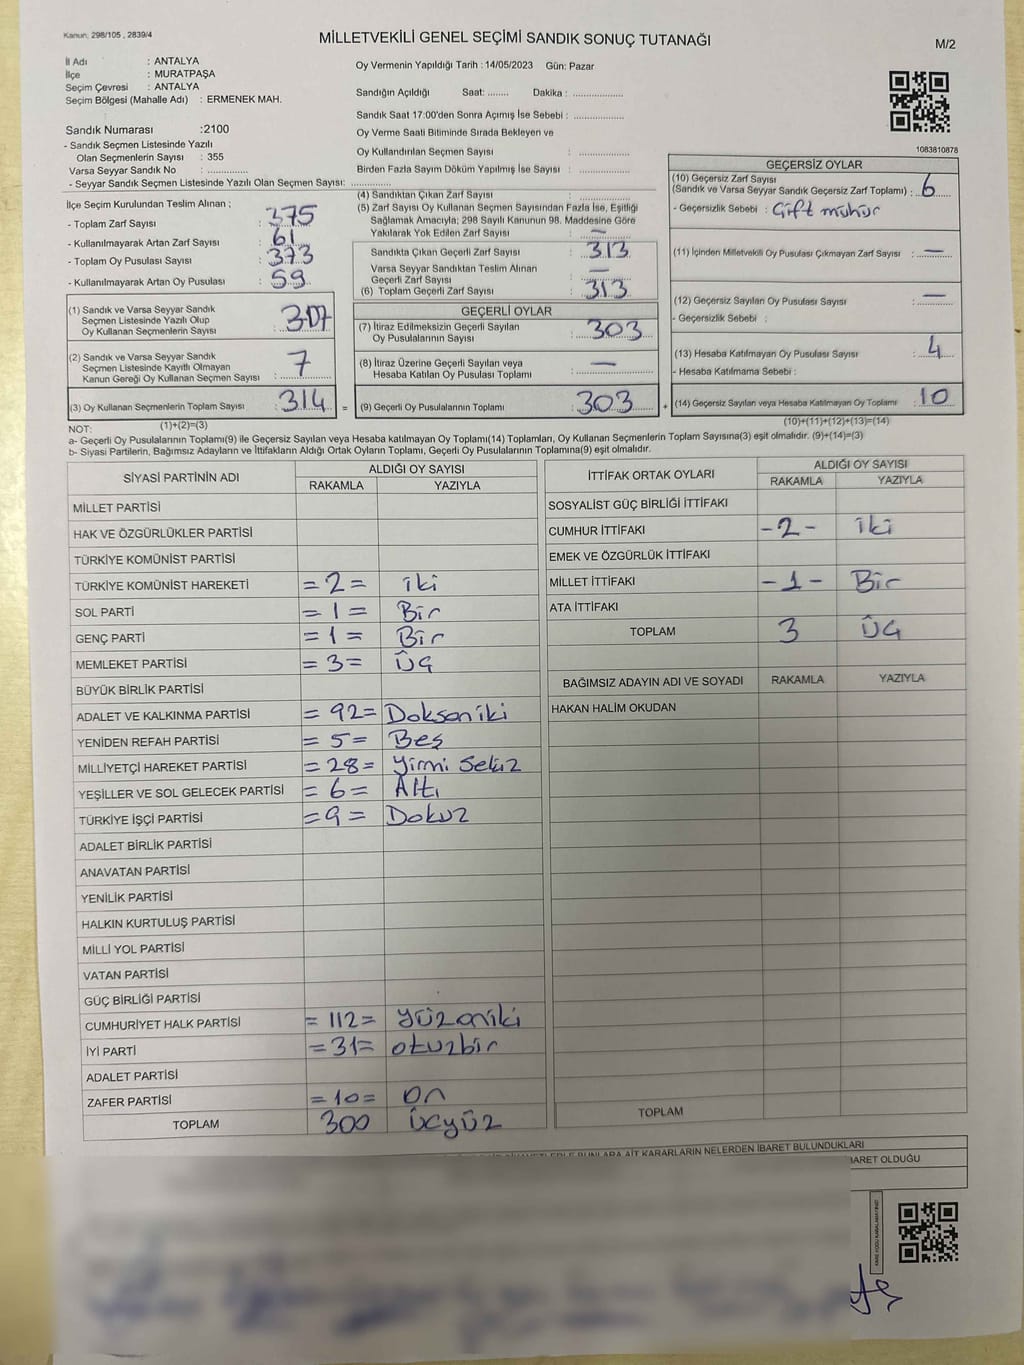 Kanun: 298/105 , 2839/4
MİLLETVEKİLİ GENEL SEÇİMİ SANDIK SONUÇ TUTANAĞI
M/2
İl Adı : ANTALYA
İlçe : MURATPAŞA
Seçim Çevresi : ANTALYA
Seçim Bölgesi (Mahalle Adı) : ERMENEK MAH.
Oy Vermenin Yapıldığı Tarih : 14/05/2023 Gün: Pazar
Sandığın Açıldığı Saat: ........ Dakika : ....................
Sandık Saat 17:00'den Sonra Açımış İse Sebebi : ....................
Oy Verme Saati Bitiminde Sırada Bekleyen ve
Oy Kullandırılan Seçmen Sayısı : ....................
Birden Fazla Sayım Döküm Yapılmış İse Sayısı : ....................
1083810878
Sandık Numarası :2100
- Sandık Seçmen Listesinde Yazılı
Olan Seçmenlerin Sayısı : 355
Varsa Seyyar Sandık No : ................
- Seyyar Sandık Seçmen Listesinde Yazılı Olan Seçmen Sayısı: ................
İlçe Seçim Kurulundan Teslim Alınan ;
- Toplam Zarf Sayısı : 375
- Kullanılmayarak Artan Zarf Sayısı : 61
- Toplam Oy Pusulası Sayısı : 373
- Kullanılmayarak Artan Oy Pusulası : 59
(1) Sandık ve Varsa Seyyar Sandık
Seçmen Listesinde Yazılı Olup
Oy Kullanan Seçmenlerin Sayısı : 307
(2) Sandık ve Varsa Seyyar Sandık
Seçmen Listesinde Kayıtlı Olmayan
Kanun Gereği Oy Kullanan Seçmen Sayısı : 7
(3) Oy Kullanan Seçmenlerin Toplam Sayısı : 314 =
(1)+(2)=(3)
(4) Sandıktan Çıkan Zarf Sayısı : ....................
(5) Zarf Sayısı Oy Kullanan Seçmen Sayısından Fazla İse, Eşitliği
Sağlamak Amacıyla; 298 Sayılı Kanunun 98. Maddesine Göre
Yakılarak Yok Edilen Zarf Sayısı : —
Sandıkta Çıkan Geçerli Zarf Sayısı : 313
Varsa Seyyar Sandıktan Teslim Alınan
Geçerli Zarf Sayısı : —
(6) Toplam Geçerli Zarf Sayısı : 313
GEÇERLİ OYLAR
(7) İtiraz Edilmeksizin Geçerli Sayılan
Oy Pusulalarının Sayısı : 303
(8) İtiraz Üzerine Geçerli Sayılan veya
Hesaba Katılan Oy Pusulası Toplamı : —
(9) Geçerli Oy Pusulalarının Toplamı : 303 +
GEÇERSİZ OYLAR
(10) Geçersiz Zarf Sayısı
(Sandık ve Varsa Seyyar Sandık Geçersiz Zarf Toplamı) : 6
- Geçersizlik Sebebi : Çift mühür
(11) İçinden Milletvekili Oy Pusulası Çıkmayan Zarf Sayısı : —
(12) Geçersiz Sayılan Oy Pusulası Sayısı : —
- Geçersizlik Sebebi :
(13) Hesaba Katılmayan Oy Pusulası Sayısı : 4
- Hesaba Katılmama Sebebi :
(14) Geçersiz Sayılan veya Hesaba Katılmayan Oy Toplamı : 10
(10)+(11)+(12)+(13)=(14)
NOT:
a- Geçerli Oy Pusulalarının Toplamı(9) ile Geçersiz Sayılan veya Hesaba katılmayan Oy Toplamı(14) Toplamları, Oy Kullanan Seçmenlerin Toplam Sayısına(3) eşit olmalıdır. (9)+(14)=(3)
b- Siyasi Partilerin, Bağımsız Adayların ve İttifakların Aldığı Ortak Oyların Toplamı, Geçerli Oy Pusulalarının Toplamına(9) eşit olmalıdır.
SİYASİ PARTİNİN ADI ALDIĞI OY SAYISI
RAKAMLA YAZIYLA
MİLLET PARTİSİ
HAK VE ÖZGÜRLÜKLER PARTİSİ
TÜRKİYE KOMÜNİST PARTİSİ
TÜRKİYE KOMÜNİST HAREKETİ = 2 = iki
SOL PARTİ = 1 = Bir
GENÇ PARTİ = 1 = Bir
MEMLEKET PARTİSİ = 3 = Üç
BÜYÜK BİRLİK PARTİSİ
ADALET VE KALKINMA PARTİSİ = 92 = Doksaniki
YENİDEN REFAH PARTİSİ = 5 = Beş
MİLLİYETÇİ HAREKET PARTİSİ = 28 = Yirmi Sekiz
YEŞİLLER VE SOL GELECEK PARTİSİ = 6 = Altı
TÜRKİYE İŞÇİ PARTİSİ = 9 = Dokuz
ADALET BİRLİK PARTİSİ
ANAVATAN PARTİSİ
YENİLİK PARTİSİ
HALKIN KURTULUŞ PARTİSİ
MİLLİ YOL PARTİSİ
VATAN PARTİSİ
GÜÇ BİRLİĞİ PARTİSİ
CUMHURİYET HALK PARTİSİ = 112 = Yüzoniki
İYİ PARTİ = 31 = otuzbir
ADALET PARTİSİ
ZAFER PARTİSİ = 10 = On
TOPLAM 300 Üçyüz
İTTİFAK ORTAK OYLARI ALDIĞI OY SAYISI
RAKAMLA YAZIYLA
SOSYALİST GÜÇ BİRLİĞİ İTTİFAKI
CUMHUR İTTİFAKI - 2 - iki
EMEK VE ÖZGÜRLÜK İTTİFAKI
MİLLET İTTİFAKI - 1 - Bir
ATA İTTİFAKI
TOPLAM 3 Üç
BAĞIMSIZ ADAYIN ADI VE SOYADI RAKAMLA YAZIYLA
HAKAN HALİM OKUDAN
TOPLAM
BUNLARA AİT KARARLARIN NELERDEN İBARET BULUNDUKLARI
İBARET OLDUĞU